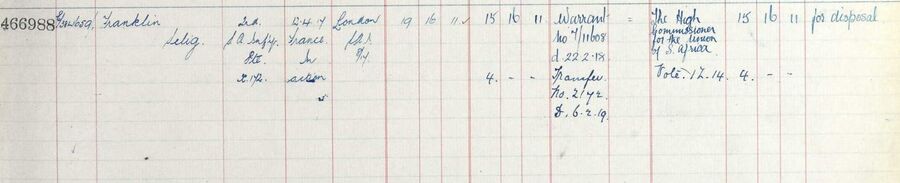 466988
Franklin
Selig.
S.A. Infy.
Pte.
12.4.17
France
In
action
London
19 16 11
15 16 11
Warrant
No 7/11608
d. 22.2.18
=
The High
Commissioner
for the Union
of S. Africa
15 16 11
for disposal
4. - -
Transfer
No. 2172.
D. 6.2.19.
Vote. 12.14.
4. - -